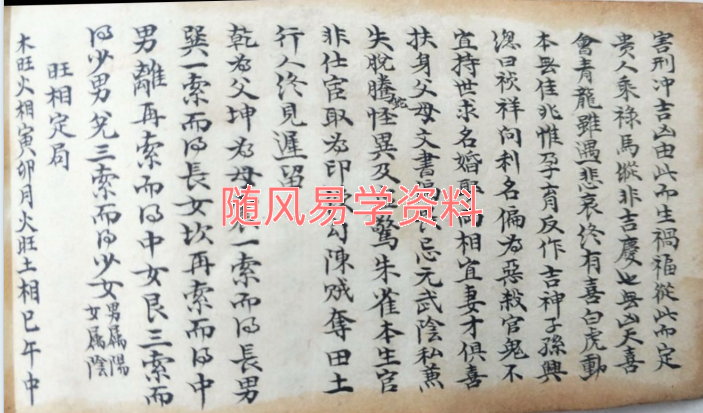 害刑冲吉凶由此而生禍福從此而定
贵人乘禄馬縱非吉慶也無凶天喜
會青龍雖遇悲哀終有喜白虎動
本無佳兆惟孕育反作吉神子孫興
總曰祯祥问利名偏为惡殺官鬼不
宜持世求名婚而相宜妻才俱喜
扶身父母文書忌元武陰私兼
失脱騰蛇怪異及驚朱雀本生官
非仕宦取为印勾陳賊奪田土
行人終見遲留
乾为父坤为母一索而得長男
巽一索而得長女坎再索而得中
男離再索而得中女艮三索而
得少男兑三索而得少女男属陽
女属陰
旺相定局
木旺火相寅卯月火旺土相巳午中
随风易学资料